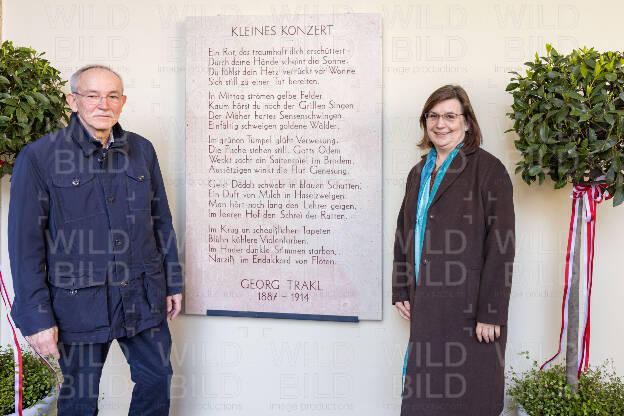 KLEINES KONZERT
Ein Rot, das traumhaft dich erschüttert –
Durch deine Hände scheint die Sonne.
Du fühlst dein Herz verrückt vor Wonne
Sich still zu einer Tat bereiten.
In Mittag strömen gelbe Felder.
Kaum hörst du noch der Grillen Singen,
Der Mäher hartes Sensenschwingen.
Einfältig schweigen goldene Wälder.
Im grünen Tümpel glüht Verwesung.
Die Fische stehen still. Gotts Odem
Weckt sacht ein Saitenspiel im Brodem.
Aussätzigen winkt die Flut Genesung.
Geist Dädals schwebt in blauen Schatten,
Ein Duft von Milch in Haselzweigen.
Man hört noch lang den Lehrer geigen,
Im leeren Hof den Schrei der Ratten.
Im Krug an scheußlichen Tapeten
Blühn kühlere Violenfarben.
Im Hader dunkle Stimmen starben,
Narziß im Endakkord von Flöten.
GEORG TRAKL
1887 - 1914
WILD
BILD
image productions